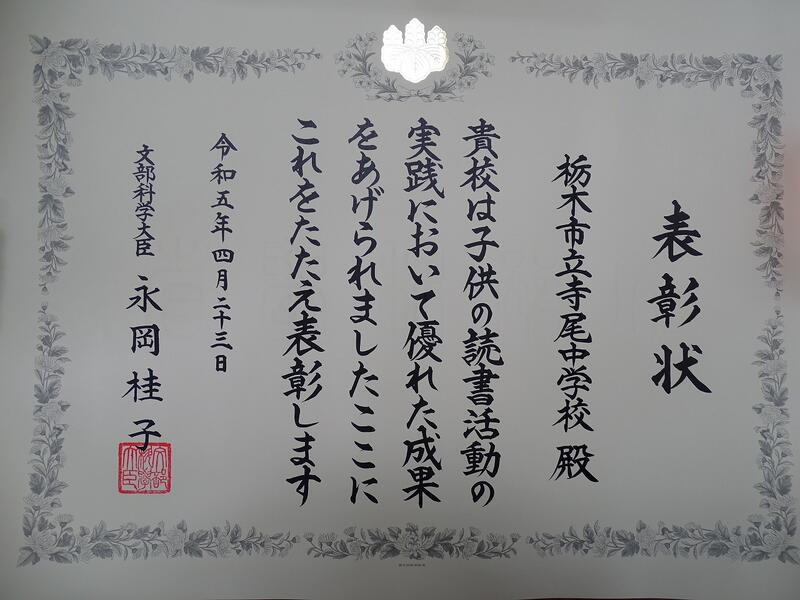 表彰状
栃木市立寺尾中学校 殿
貴校は子供の読書活動の
実践において優れた成果
をあげられましたここに
これをたたえ表彰します
令和五年四月二十三日
文部科学大臣 永岡桂子